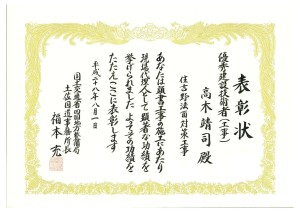 表彰状
優秀建設技術者(工事)
高木靖司殿
住吉野法面対策工事
あなたは頭書工事の施工にあたり
現場代理人として顕著な功績を
挙げられました よってその功績を
たたえここに表彰します
平成二十八年八月一日
国土交通省四国地方整備局
土佐国道事務所長
福本充